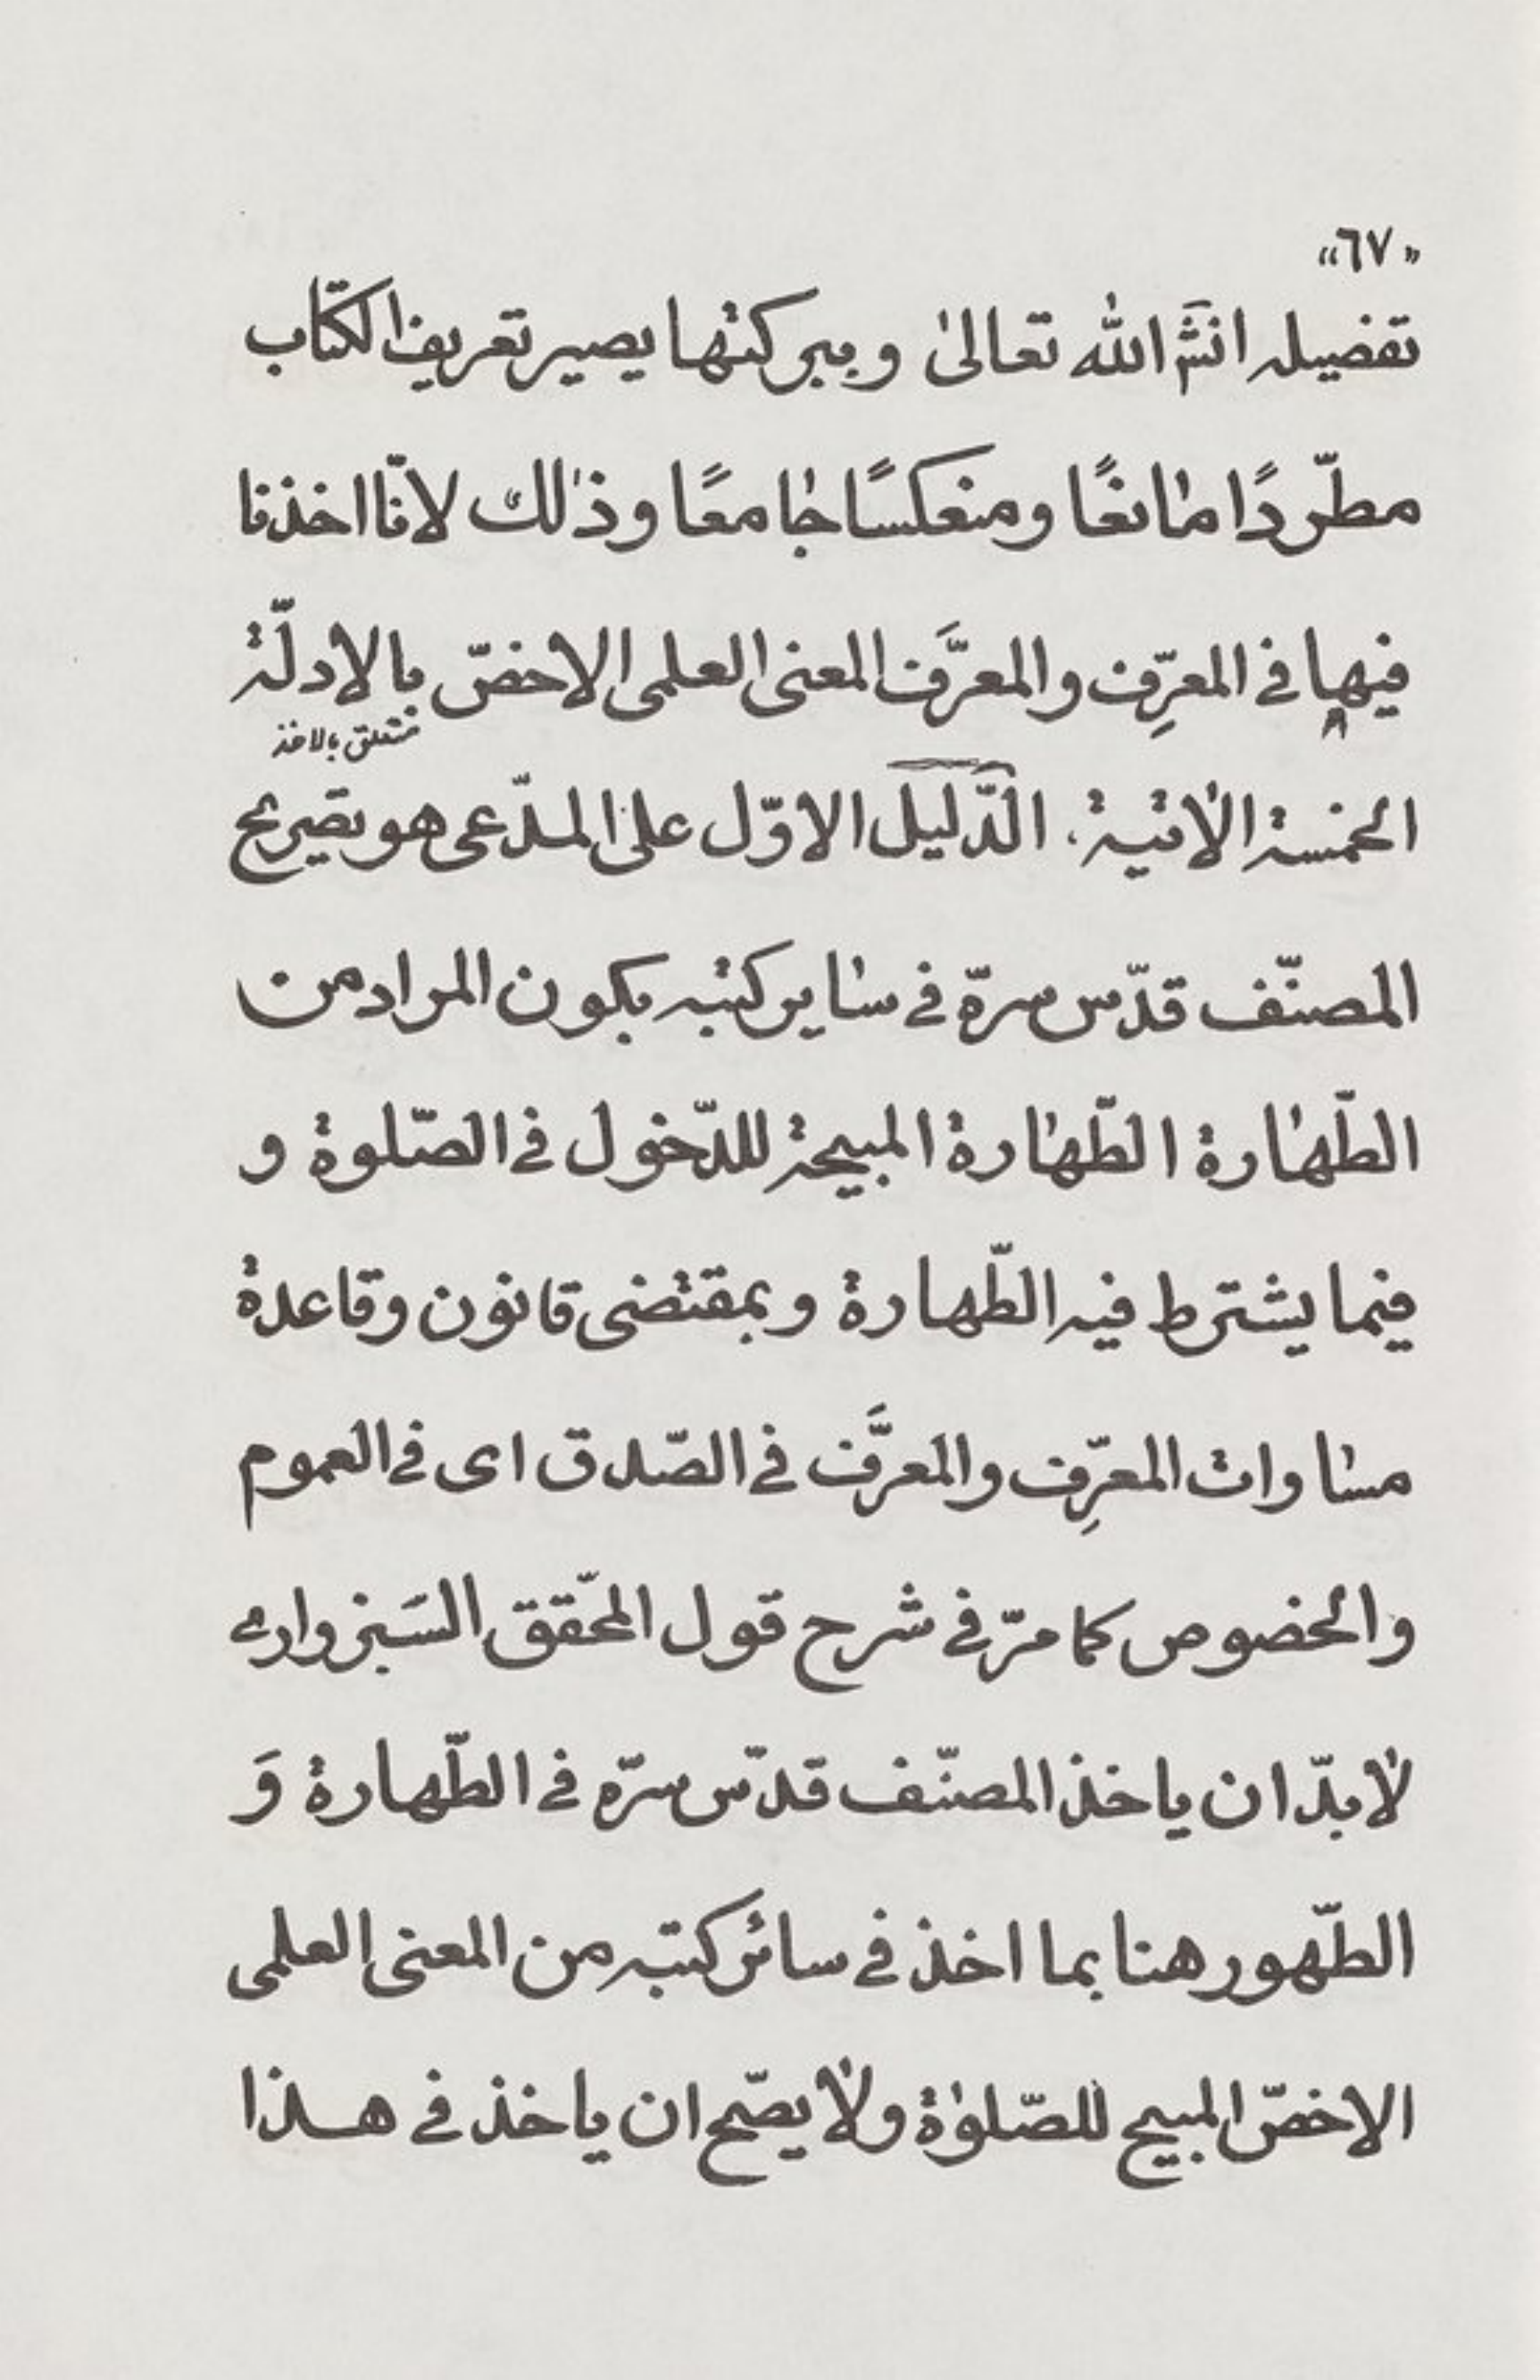 «٦٧»
تفضيله انشَّ الله تعالىٰ وببركتها يصير تعريف الكتاب
مطّردًا مٰانعًا ومنعكسًا جٰامعًا وذٰلك لانّا اخذنا
فيها فى المعرِّف والمعرَّف المعنى العلمى الاخصّ بالادلّة
متعلق بالاخذ
الخمسة الاٰتية. الدَّليل الاوّل على المدّعى هو تصريح
المصنّف قدّس سرّه فى سٰاير كتبه بكون المراد من
الطّهٰارة الطّهٰارة المبيحة للدّخول فى الصّلوة و
فيما يشترط فيه الطّهارة وبمقتضى قانون وقاعدة
مسٰاوات المعرِّف والمعرَّف فى الصّدق اى فى العموم
والخصوص كما مرّ فى شرح قول المحّقق السَبزوارى
لاٰبدّ ان ياخذ المصنّف قدّس سرّه فى الطّهارة وَ
الطّهور هنا بما اخذ فى سائر كتبه من المعنى العلمى
الاخصّ المبيح للصّلوٰة ولاٰ يصّح ان ياخذ فى هـذا